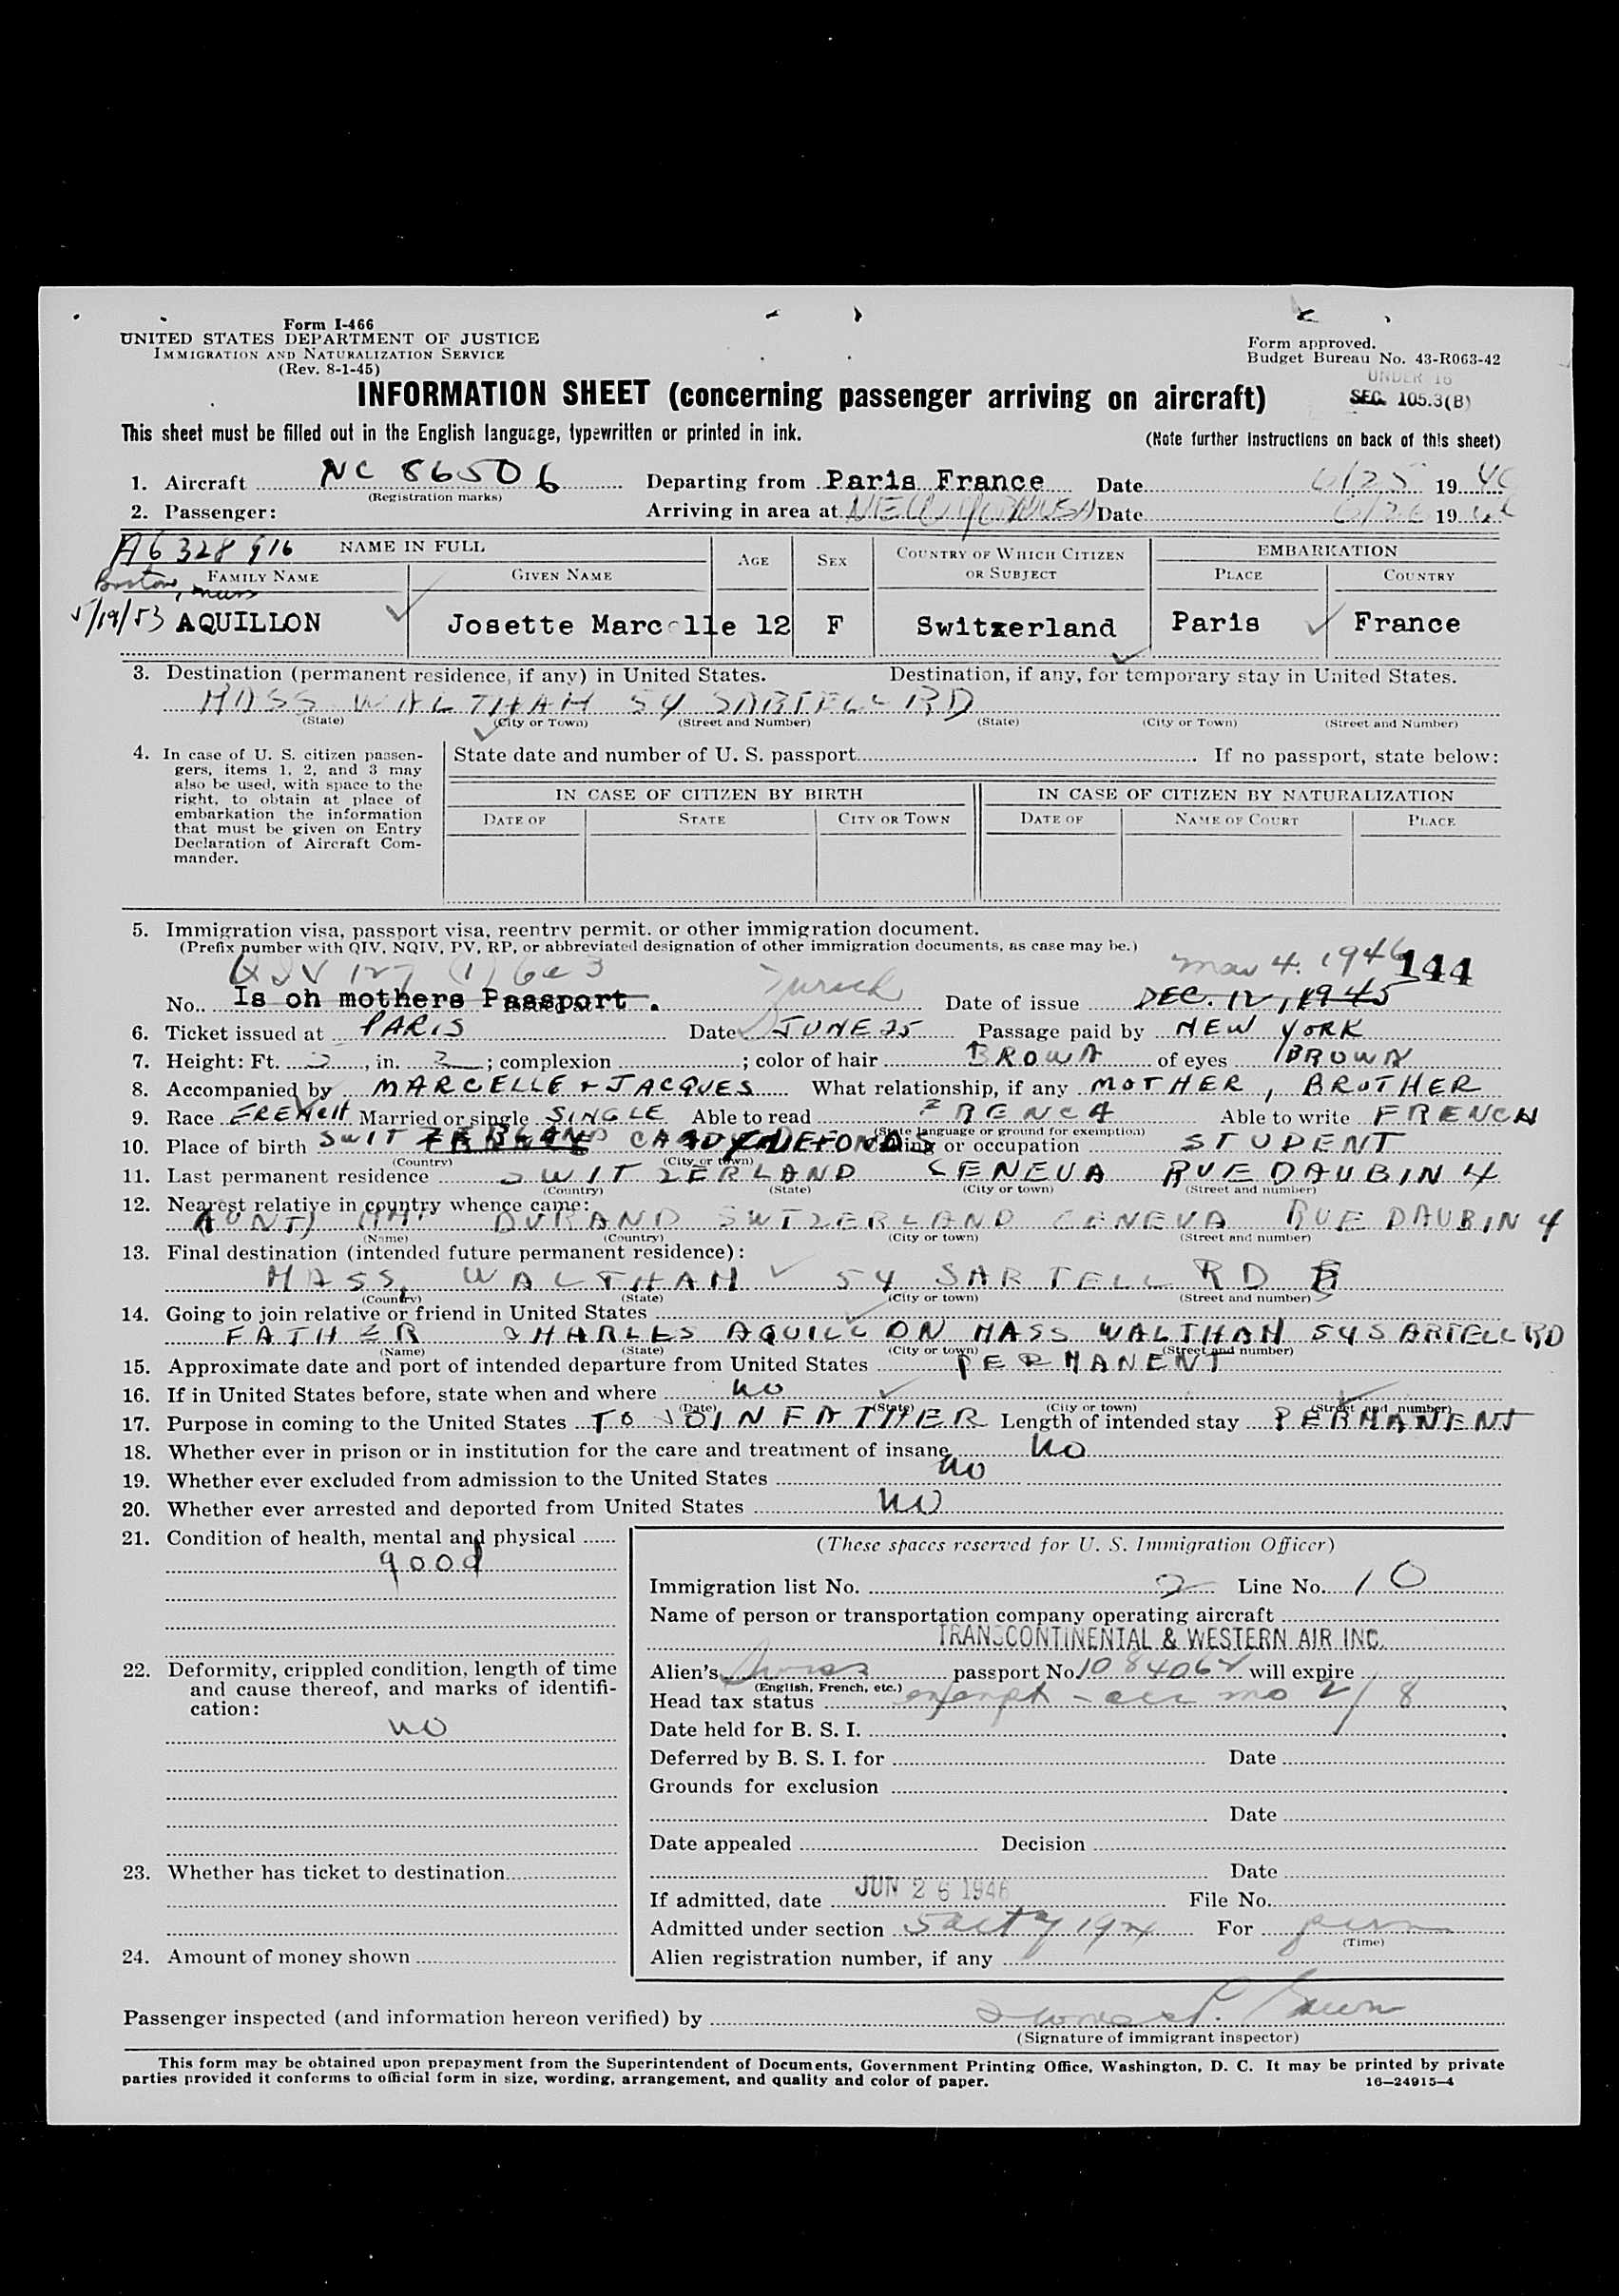 Form I-466
UNITED STATES DEPARTMENT OF JUSTICE
IMMIGRATION AND NATURALIZATION SERVICE
(Rev. 8-1-45)
Form approved.
Budget Bureau No. 43-R063-42
UNDER 16
SEC. 105.3(B)
INFORMATION SHEET (concerning passenger arriving on aircraft)
This sheet must be filled out in the English language, typewritten or printed in ink.
(Note further instructions on back of this sheet)
1. Aircraft NC 86506 Departing from Paris France Date 6/25 19
(Registration marks)
2. Passenger: Arriving in area at NEW YORK USA Date 6/26 19
A6 328 916 NAME IN FULL AGE SEX COUNTRY OF WHICH CITIZEN OR SUBJECT EMBARKATION
Boston, mass FAMILY NAME GIVEN NAME PLACE COUNTRY
5/19/53 AQUILLON Josette Marcelle 12 F Switzerland Paris France
3. Destination (permanent residence, if any) in United States. Destination, if any, for temporary stay in United States.
MASS WALTHAM 54 SARTELL RD
(State) (City or Town) (Street and Number) (State) (City or Town) (Street and Number)
4. In case of U. S. citizen passengers, items 1, 2, and 3 may also be used, with space to the right, to obtain at place of embarkation the information that must be given on Entry Declaration of Aircraft Commander.
State date and number of U. S. passport If no passport, state below:
IN CASE OF CITIZEN BY BIRTH IN CASE OF CITIZEN BY NATURALIZATION
DATE OF STATE CITY OR TOWN DATE OF NAME OF COURT PLACE
5. Immigration visa, passport visa, reentry permit, or other immigration document.
(Prefix number with QIV, NQIV, PV, RP, or abbreviated designation of other immigration documents, as case may be.)
QIV 127 (1) 6e3 Zurich mar 4. 1946 144
No. Is on mothers Passport. Issued at Date of issue DEC. 12, 1945
6. Ticket issued at PARIS Date JUNE 25 Passage paid by NEW YORK
7. Height: Ft. , in. 2 ; complexion ; color of hair BROWN of eyes BROWN
8. Accompanied by MARCELLE + JACQUES What relationship, if any MOTHER, BROTHER
9. Race FRENCH Married or single SINGLE Able to read FRENCH Able to write FRENCH
(State language or ground for exemption)
10. Place of birth SWITZERLAND Calling or occupation STUDENT
(Country) (City or town)
11. Last permanent residence SWITZERLAND GENEVA RUE DAUBIN 4
(Country) (State) (City or town) (Street and number)
12. Nearest relative in country whence came:
(AUNT) DURAND SWTZERLAND GENEVA RUE DAUBIN 4
(Name) (Country) (City or town) (Street and number)
13. Final destination (intended future permanent residence):
MASS, WALTHAM 54 SARTELL RD
(Country) (State) (City or town) (Street and number)
14. Going to join relative or friend in United States
FATHER CHARLES AQUILLON MASS WALTHAM 54 SARTELL RD
(Name) (State) (City or town) (Street and number)
15. Approximate date and port of intended departure from United States PERMANENT
16. If in United States before, state when and where no
(Date) (State) (City or town) (Street and number)
17. Purpose in coming to the United States TO JOIN FATHER Length of intended stay PERMANENT
18. Whether ever in prison or in institution for the care and treatment of insane no
19. Whether ever excluded from admission to the United States no
20. Whether ever arrested and deported from United States no
21. Condition of health, mental and physical
good
22. Deformity, crippled condition, length of time and cause thereof, and marks of identification:
no
23. Whether has ticket to destination
24. Amount of money shown
(These spaces reserved for U. S. Immigration Officer)
Immigration list No. 2 Line No. 10
Name of person or transportation company operating aircraft
TRANSCONTINENTAL & WESTERN AIR INC.
Alien's Swiss passport No. 1084062 will expire
(English, French, etc.)
Head tax status exempt - 2/8
Date held for B. S. I.
Deferred by B. S. I. for Date
Grounds for exclusion
Date
Date appealed Decision
Date
If admitted, date JUN 26 1946 File No.
Admitted under section 5 act of 1924 For perm
(Time)
Alien registration number, if any
Passenger inspected (and information hereon verified) by
(Signature of immigrant inspector)
This form may be obtained upon prepayment from the Superintendent of Documents, Government Printing Office, Washington, D. C. It may be printed by private
parties provided it conforms to official form in size, wording, arrangement, and quality and color of paper. 16—24915-4